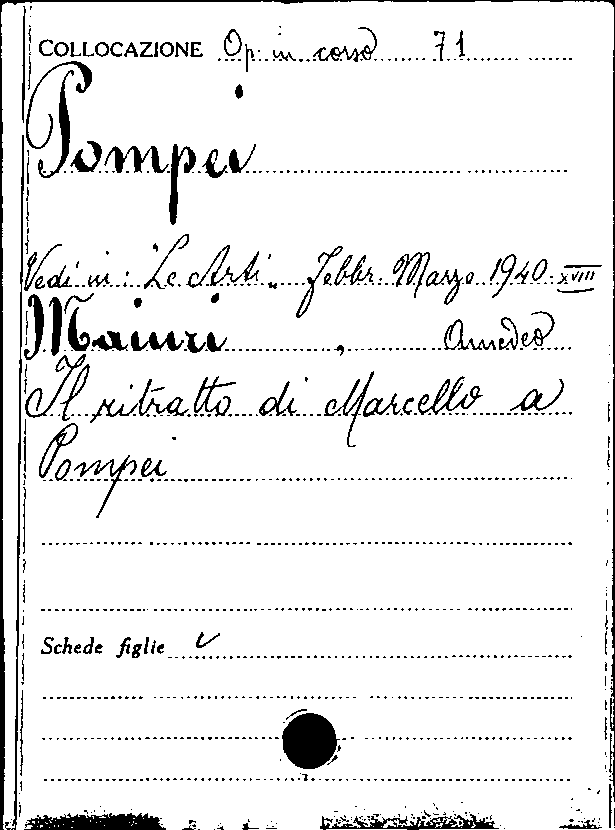 COLLOCAZIONE Op. in corso 71
Pompei
Vedi in: "Le Arti" Febbr. Marzo 1940. XVIII
Maiuri, Amedeo
Il ritratto di Marcello a
Pompei
Schede figlie ✓